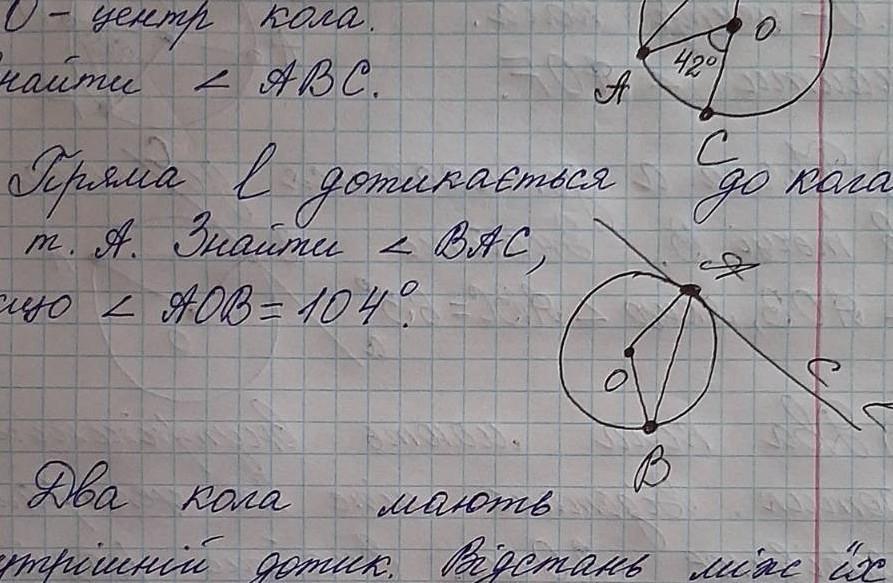 О - центр кола.
найти < ABC.
O
42°
A
C
Пряма l дотикається до кола
т. A. Знайти < BAC,
що < AOB = 104°.
A
O
C
B
Два кола мають
утрішній дотик. Відстань між їх